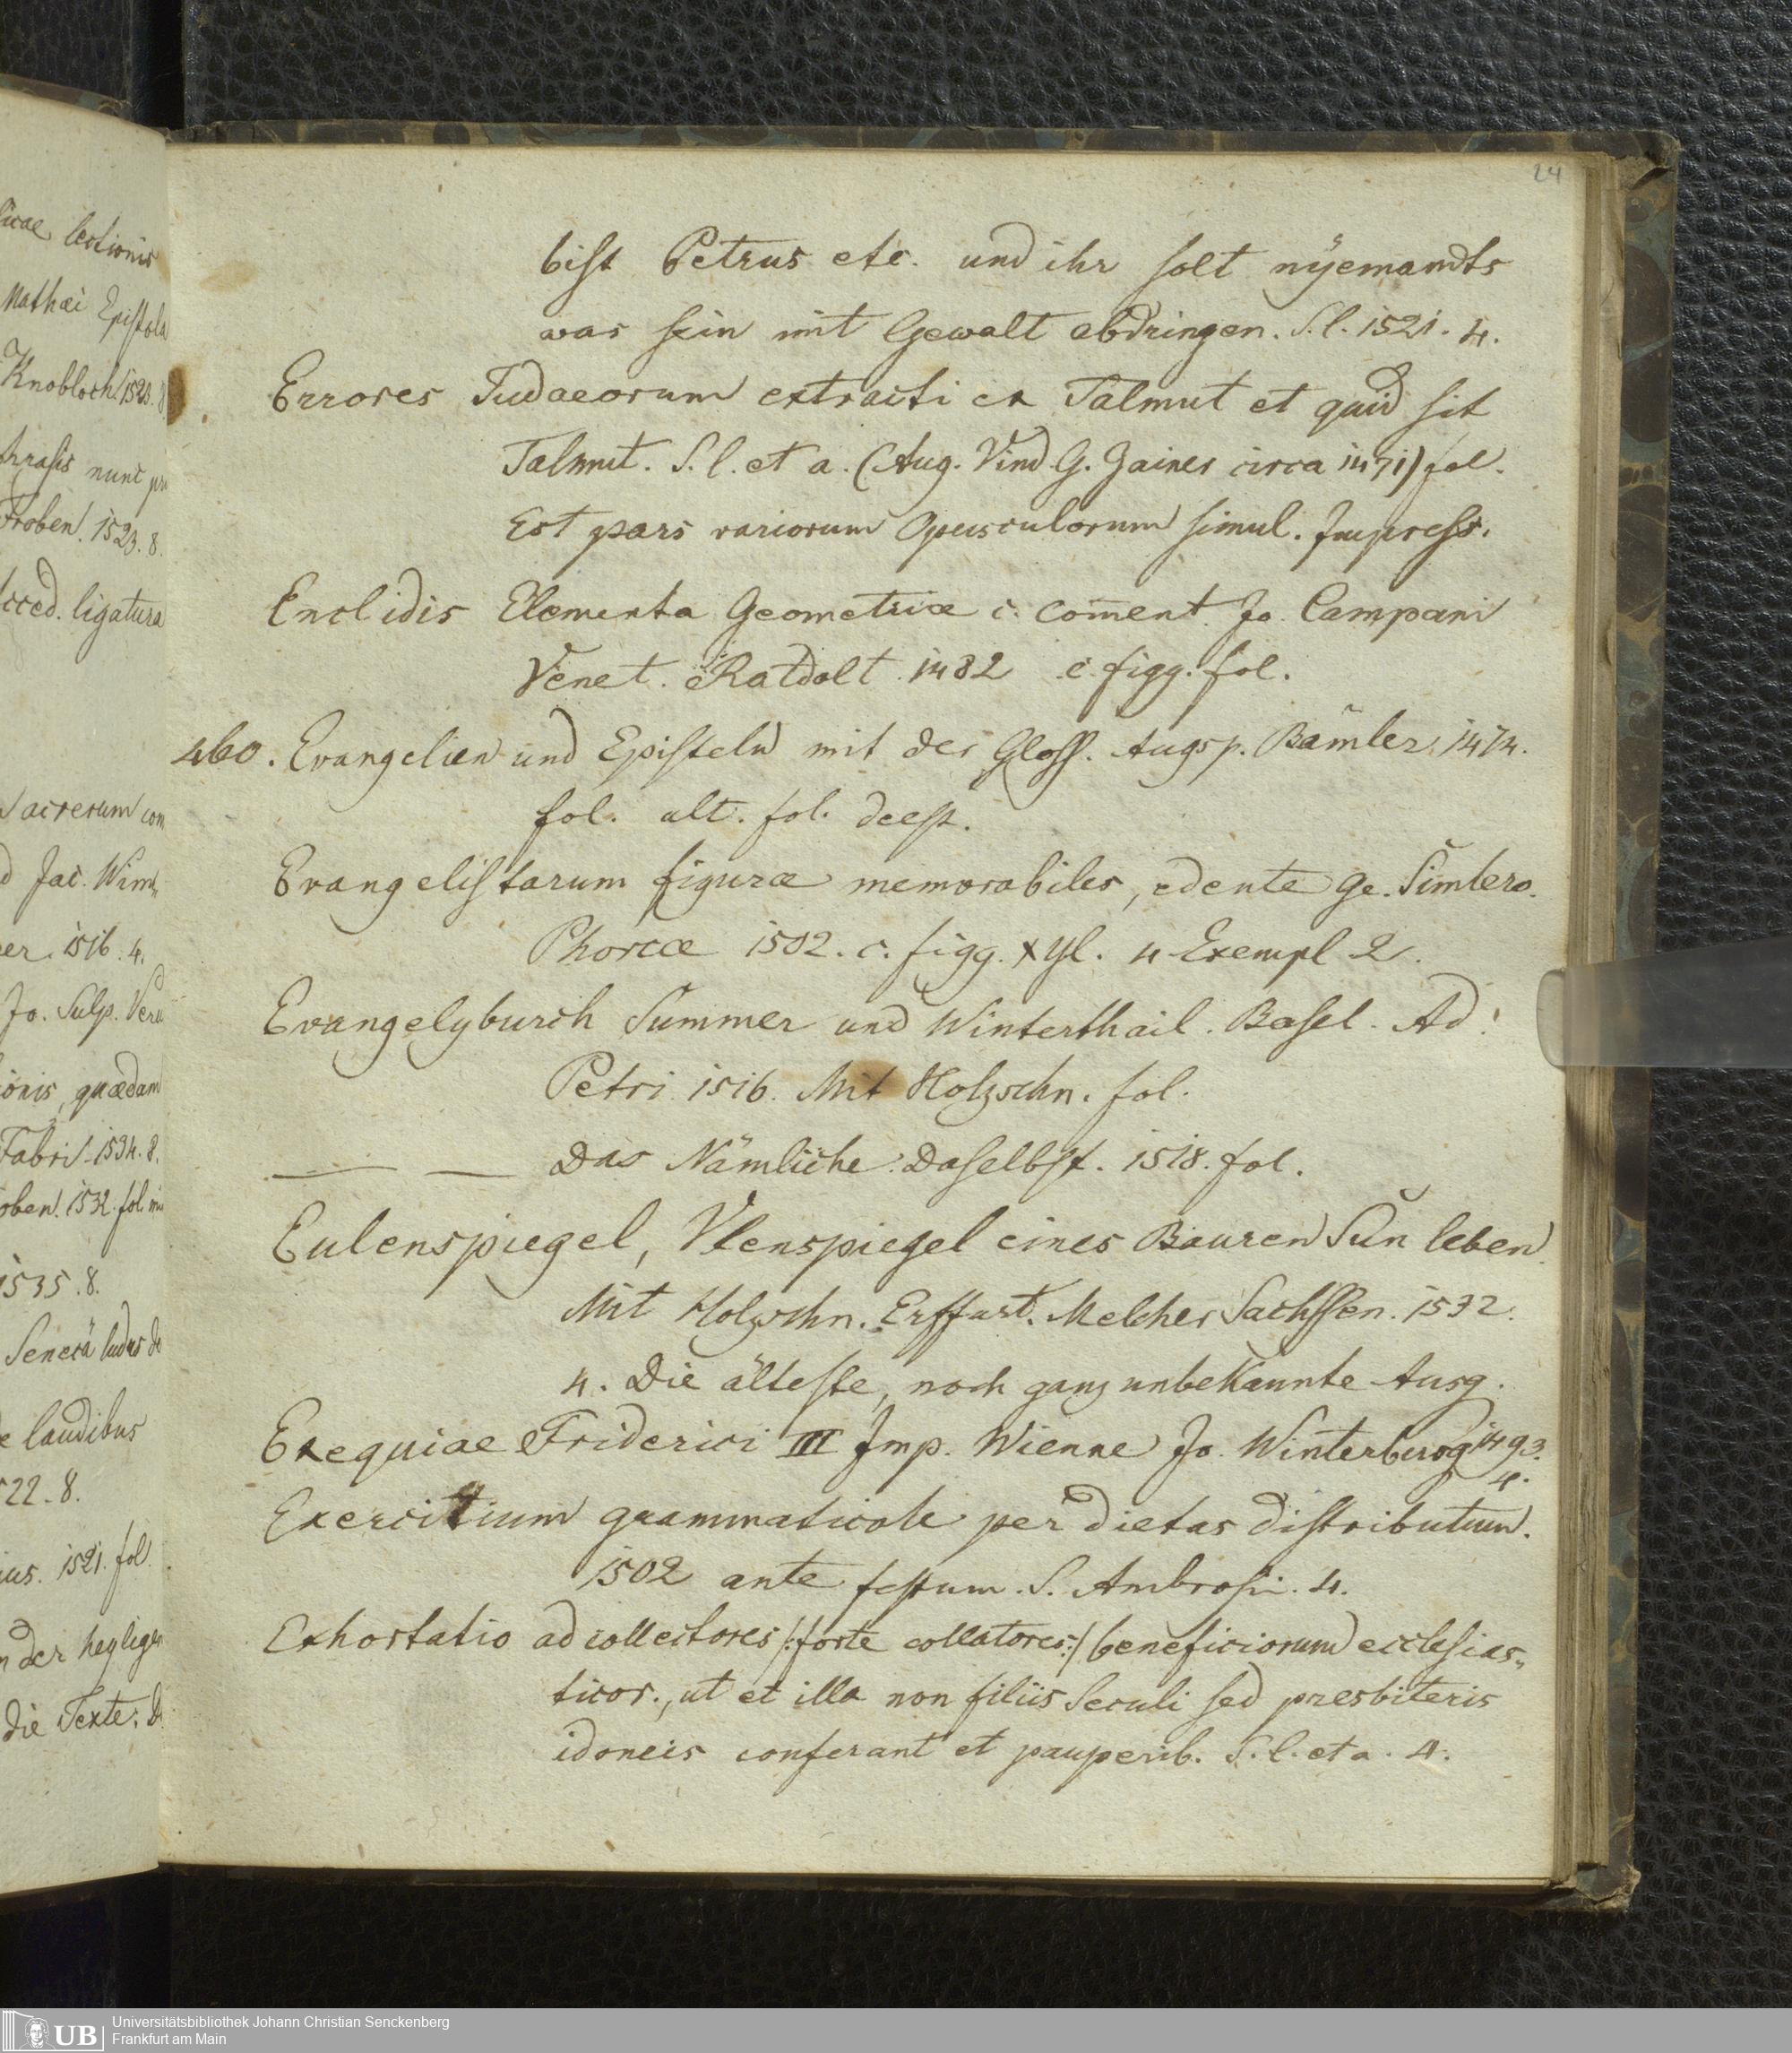 24
bist Petrus etc. und ihr solt nÿemandts
was sein mit Gewalt abdringen. S. l. 1521. 4.
Errores Judaeorum extracti ex Talmut et quid sit
Talmut. S. l. et a. (Aug. Vind. G. Zainer circa 1471) fol.
Est pars variorum Opusculorum simul. Impress.
Euclidis Elementa Geometriæ c. com̄ent. Jo. Campani
Venet. Ratdolt. 1482 c. figg. fol.
460. Evangelien und Episteln mit der Gloss. Augsp. Bämler. 1474.
fol. ult. fol. deest.
Evangelistarum figuræ memorabiles, edente Ge. Simlero.
Phorcæ 1502. c. figg. xyl. 4 Exempl 2.
Evangelybuch Summer und Winterthail. Basel. Ad.
Petri 1516. Mit Holzschn. fol.
— — Das Nämliche. Daselbst. 1518. fol.
Eulenspiegel, Vlenspiegel eines Bauren Sun leben.
Mit Holzschn. Erffurt. Melcher Sachssen. 1532.
4. Die älteste, noch ganz unbekannte Ausg.
Exequiae Friderici III Imp. Wienne Jo. Winterburg 1493.
4.
Exercitium grammaticale per dietas distributum.
1502 ante festum. S. Ambrosii. 4.
Exhortatio ad collectores /:forte collatores:/ beneficiorum ecclesias„
ticor., ut et illa non filiis Seculi sed presbiteris
idoneis conferant et pauperib. S. l. et a. 4.
licae lectionis
Mathæi Epistola
Knobloch. 1520. 8
Froben. 1523. 8.
cced. ligatura
d Jac. Wim„
er. 1516. 4.
Jo. Sulp. Veru
ionis, quædam
Fabri. 1534. 8.
oben. 1532. fol.
1535. 8.
Senecä ludus de
e laudibus
22. 8.
ius. 1521. fol.
n der heyligen
die Texte: D
UB
Universitätsbibliothek Johann Christian Senckenberg
Frankfurt am Main